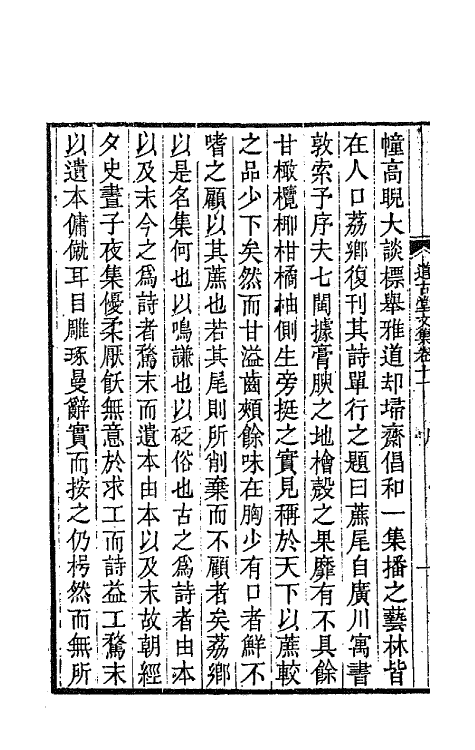 幢高睨大談標舉雅道却埽齋倡和一集播之藝林皆
在人口荔鄉復刋其詩單行之題曰蔗尾自廣川寓書
敦索予序夫七閩據膏腴之地檜殼之果靡有不具餘
甘橄欖柳柑橘柚側生旁挺之實見稱於天下以蔗較
之品少下矣然而甘溢齒頰餘味在胸少有口者鮮不
嗜之顧以其蔗也若其尾則所削棄而不顧者矣荔鄉
以是名集何也以鳴謙也以砭俗也古之爲詩者由本
以及末今之爲詩者騖末而遺本由本以及末故朝經
夕史晝子夜集優柔厭飫無意於求工而詩益工騖末
以遺本傭僦耳目雕琢曼辭實而按之仍枵然而無所
道古堂文集卷十一